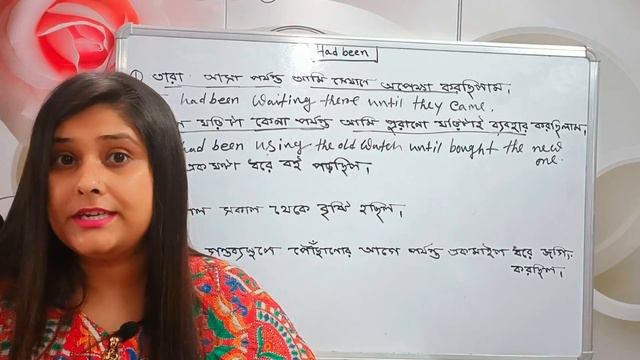 Had been
① তারা আসা পর্যন্ত আমি সেখানে অপেক্ষা করছিলাম।
had been waiting there until they came.
ঘড়িটা কেনা পর্যন্ত আমি পুরানো ঘড়িটাই ব্যবহার করছিলাম,
had been using the old watch until bought the new
one.
একঘন্টা ধরে বই পড়ছিল।
সকাল থেকে বৃষ্টি হচ্ছিল।
পৌঁছানোর আগে পর্যন্ত একমাইল ধরে জগিং
করছিল।